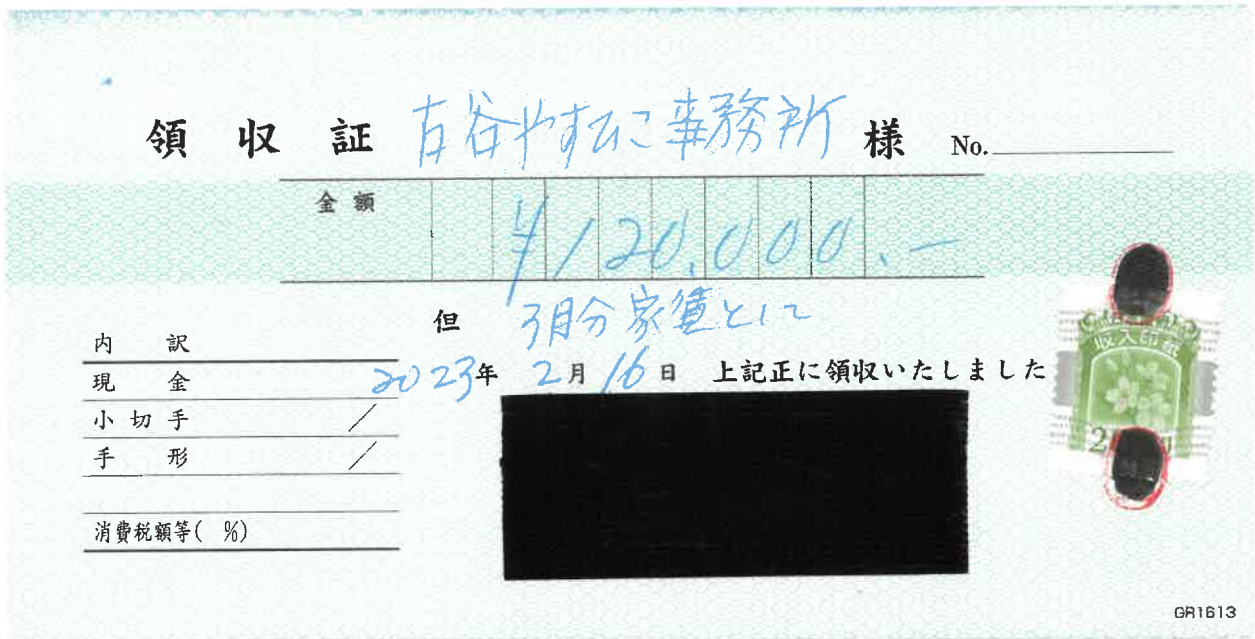 領収証 古谷やすひこ事務所 様 No.
金額 ¥120,000.-
但 3月分家賃として
2023年 2月 16日 上記正に領収いたしました
内訳
現金
小切手 /
手形 /
消費税額等( %)
収入印紙
GR1613